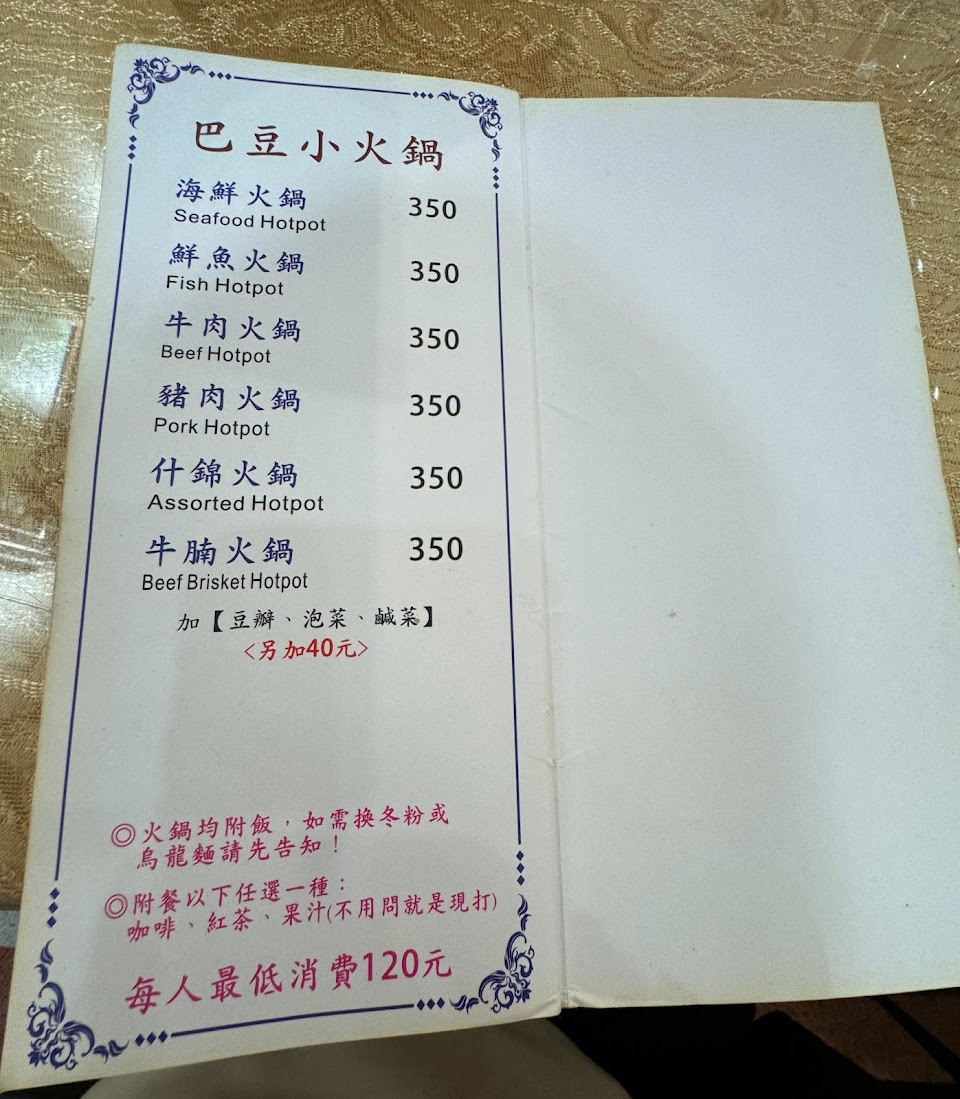 巴豆小火鍋
海鮮火鍋 350
Seafood Hotpot
鮮魚火鍋 350
Fish Hotpot
牛肉火鍋 350
Beef Hotpot
豬肉火鍋 350
Pork Hotpot
什錦火鍋 350
Assorted Hotpot
牛腩火鍋 350
Beef Brisket Hotpot
加【豆瓣、泡菜、鹹菜】
<另加40元>
◎火鍋均附飯，如需換冬粉或
烏龍麵請先告知！
◎附餐以下任選一種：
咖啡、紅茶、果汁(不用問就是現打)
每人最低消費120元